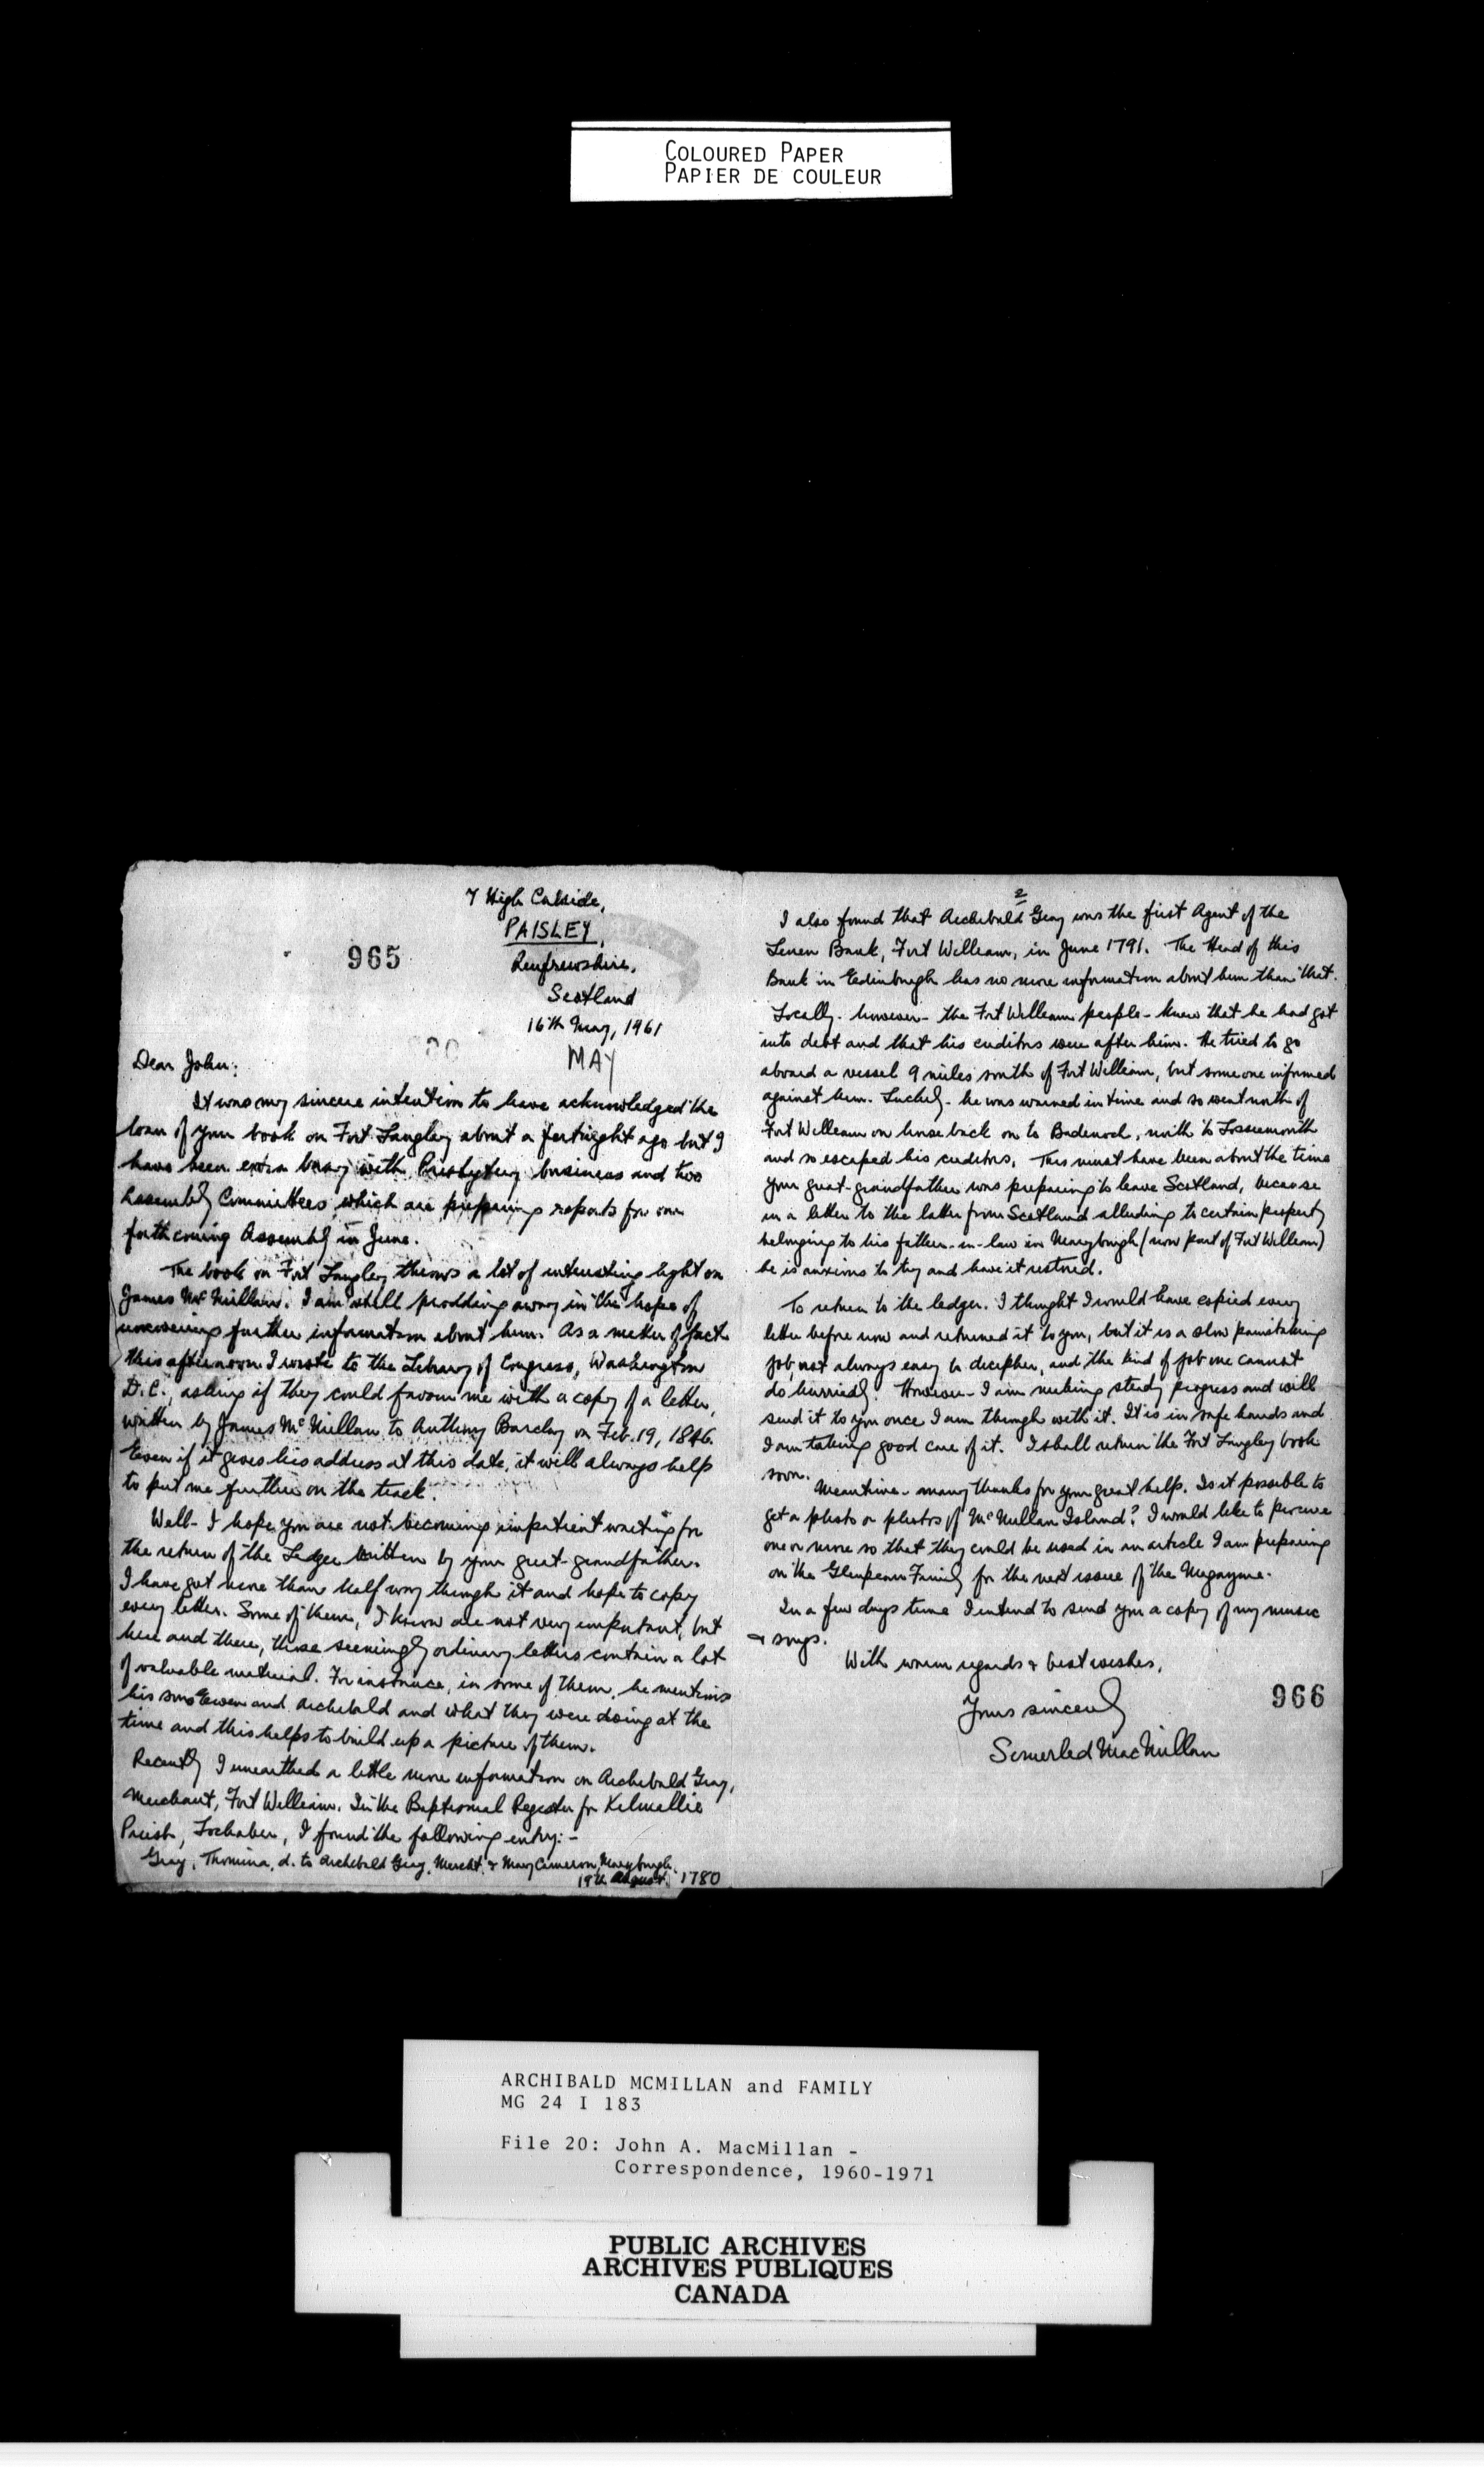 COLOURED PAPER
PAPIER DE COULEUR
7 High Calside,
PAISLEY,
965
Renfrewshire,
Scotland
16th May, 1961
MAY
Dear John:
It was my sincere intention to have acknowledged the
loan of your book on Fort Langley about a fortnight ago but I
have been extra busy with Presbytery business and two
Assembly Committees which are preparing reports for our
forthcoming Assembly in June.
The book on Fort Langley throws a lot of interesting light on
James McMillan. I am still prodding away in the hopes of
uncovering further information about him. As a matter of fact
this afternoon I wrote to the Library of Congress, Washington
D.C., asking if they could favour me with a copy of a letter,
written by James McMillan to Anthony Barclay on Feb. 19, 1846.
Even if it gives his address at this date, it will always help
to put me further on the track.
Well - I hope you are not becoming impatient waiting for
the return of the Ledger written by your great-grandfather.
I have got more than half way through it and hope to copy
every letter. Some of them, I know are not very important, but
here and there, these seemingly ordinary letters contain a lot
of valuable material. For instance, in some of them, he mentions
his sons Ewen and Archibald and what they were doing at the
time and this helps to build up a picture of them.
Recently I unearthed a little more information on Archibald Gray,
Merchant, Fort William. In the Baptismal Register for Kilmallie
Parish, Lochaber, I found the following entry:-
Gray, Thomina, d. to Archibald Gray, Mercht. & Mary Cameron, Maryburgh.
19th August, 1780
2
I also found that Archibald Gray was the first Agent of the
Leven Bank, Fort William, in June 1791. The Head of this
Bank in Edinburgh has no more information about him than that.
Locally - however - the Fort William people - knew that he had got
into debt and that his creditors were after him. He tried to go
aboard a vessel 9 miles south of Fort William, but someone informed
against him. Luckily - he was warned in time and so went north of
Fort William on horseback on to Badenoch, north to Lossiemouth
and so escaped his creditors. This must have been about the time
your great-grandfather was preparing to leave Scotland, because
in a letter to the latter from Scotland alluding to certain property
belonging to his father-in-law in Maryburgh (now part of Fort William)
he is anxious to try and have it restored.
To return to the ledger. I thought I would have copied every
letter before now and returned it to you, but it is a slow painstaking
job, not always easy to decipher, and the kind of job one cannot
do hurriedly. However - I am making steady progress and will
send it to you once I am through with it. It is in safe hands and
I am taking good care of it. I shall return the Fort Langley book
soon.
Meantime - many thanks for your great help. Is it possible to
get a photo or photos of McMillan Island? I would like to procure
one or more so that they could be used in an article I am preparing
on the Glenpean Family for the next issue of the Magazine.
In a few days time I intend to send you a copy of my music
& songs.
With warm regards & best wishes,
Yours sincerely
Somerled MacMillan
966
ARCHIBALD MCMILLAN and FAMILY
MG 24 I 183
File 20: John A. MacMillan -
Correspondence, 1960-1971
PUBLIC ARCHIVES
ARCHIVES PUBLIQUES
CANADA